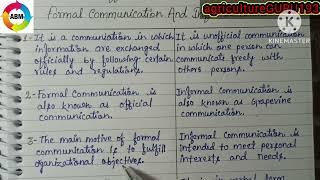 ABM
agricultureGURU193
MADE WITH
KINEMASTER
Formal Communication And Inf
1- It is a communication in which
information are exchanged
officially by following certain
rules and regulations.
It is unofficial communication
in which one person can
communicate freely with
others persons.
2- Formal communication is
also known as official
communication.
Informal communication is
also known as grapevine
communication.
3- The main motive of formal
communication is to fulfill
organizational objectives.
Informal communication is
intended to meet personal
interests and needs.